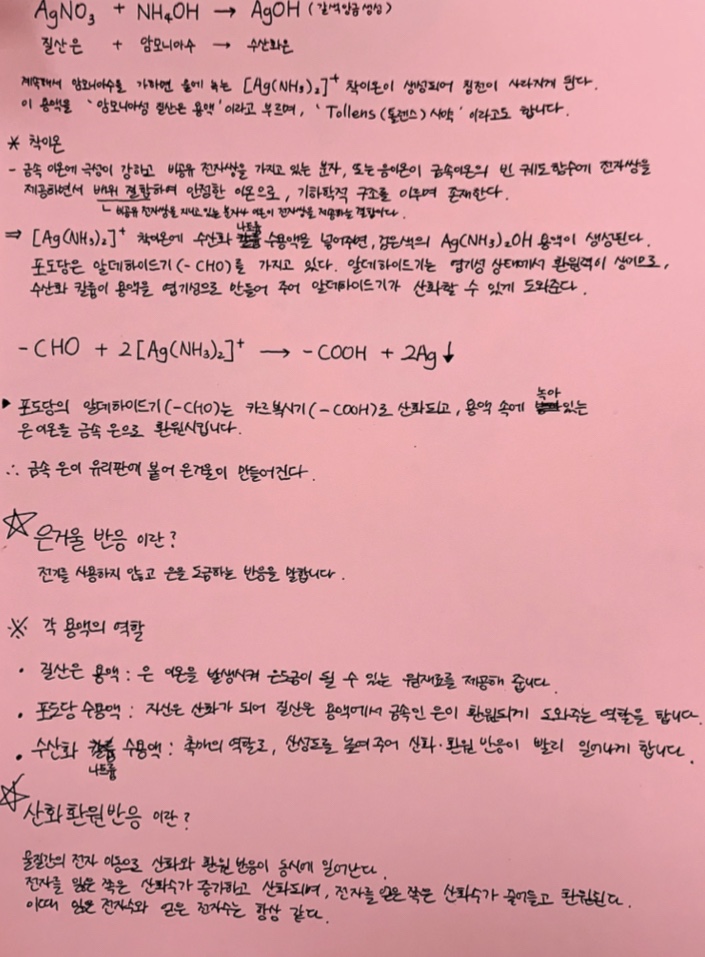 AgNO₃ + NH₄OH → AgOH (갈색앙금생성)
질산은 + 암모니아수 → 수산화은
계속해서 암모니아수를 가하면 물에 녹는 [Ag(NH₃)₂]⁺ 착이온이 생성되어 침전이 사라지게 된다.
이 용액을 '암모니아성 질산은 용액'이라고 부르며, 'Tollens(톨렌스) 시약'이라고도 합니다.
* 착이온
- 금속 이온에 극성이 강하고 비공유 전자쌍을 가지고 있는 분자, 또는 음이온이 금속이온의 빈 궤도함수에 전자쌍을
제공하면서 배위 결합하여 안정한 이온으로, 기하학적 구조를 이루며 존재한다.
ㄴ 비공유 전자쌍을 지니고 있는 분자나 이온이 전자쌍을 제공하는 결합이다.
⇒ [Ag(NH₃)₂]⁺ 착이온에 수산화 나트륨 수용액을 넣어주면, 검은색의 Ag(NH₃)₂OH 용액이 생성된다.
포도당은 알데하이드기(-CHO)를 가지고 있다. 알데하이드기는 염기성 상태에서 환원력이 생기므로,
수산화 칼륨이 용액을 염기성으로 만들어 주어 알데하이드기가 산화할 수 있게 도와준다.
-CHO + 2[Ag(NH₃)₂]⁺ → -COOH + 2Ag↓
▶ 포도당의 알데하이드기(-CHO)는 카르복시기(-COOH)로 산화되고, 용액 속에 녹아 있는
은 이온을 금속 은으로 환원시킵니다.
∴ 금속 은이 유리판에 붙어 은거울이 만들어진다.
☆ 은거울 반응 이란?
전기를 사용하지 않고 은을 도금하는 반응을 말합니다.
※ 각 용액의 역할
• 질산은 용액 : 은 이온을 발생시켜 은도금이 될 수 있는 원재료를 제공해 줍니다.
• 포도당 수용액 : 자신은 산화가 되어 질산은 용액에서 금속인 은이 환원되게 도와주는 역할을 합니다.
• 수산화 나트륨 수용액 : 촉매의 역할로, 산성도를 높여 주어 산화·환원 반응이 빨리 일어나게 합니다.
☆ 산화환원반응 이란?
물질간의 전자 이동으로 산화와 환원 반응이 동시에 일어난다.
전자를 잃은 쪽은 산화수가 증가하고 산화되며, 전자를 얻은 쪽은 산화수가 줄어들고 환원된다.
이때 잃은 전자수와 얻은 전자수는 항상 같다.